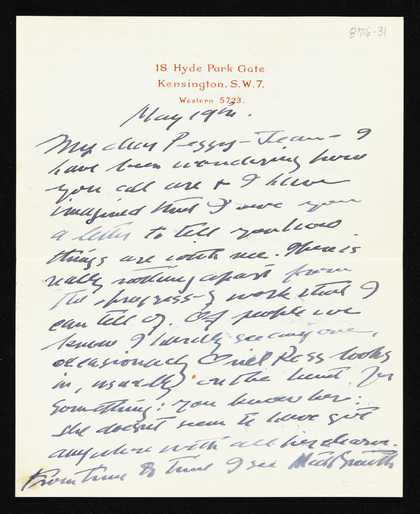 876-31
18 Hyde Park Gate
Kensington. S.W.7.
Western 5723.
May 19th.
My dear Peggy-Jean - I
have been wondering how
you all are & I have
imagined that I owe you
a letter to tell you how
things are with me. There is
really nothing apart from
the progress of work that I
can tell of. Of people we
know I hardly see anyone,
occasionally Ross looks
in, usually on the hunt for
something: you know her:
she doesn't seem to have got
anywhere with all her charm.
From time to time I see Smith